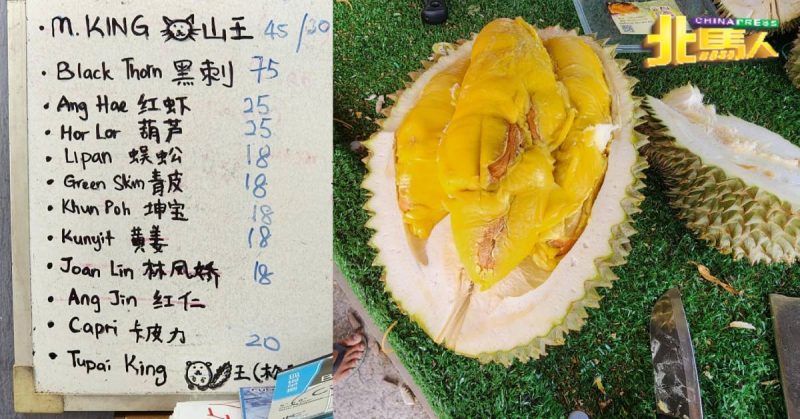 M. KING 山王 45/30
Black Thorn 黑刺 75
Ang Hae 红虾 25
Hor Lor 葫芦 25
Lipan 蜈蚣 18
Green Skin 青皮 18
Khun Poh 坤宝 18
Kunyit 黄姜 18
Joan Lin 林凤娇 18
Ang Jin 红仁
Capri 卡皮力 20
Tupai King 王(松
CHINAPRESS
北馬人